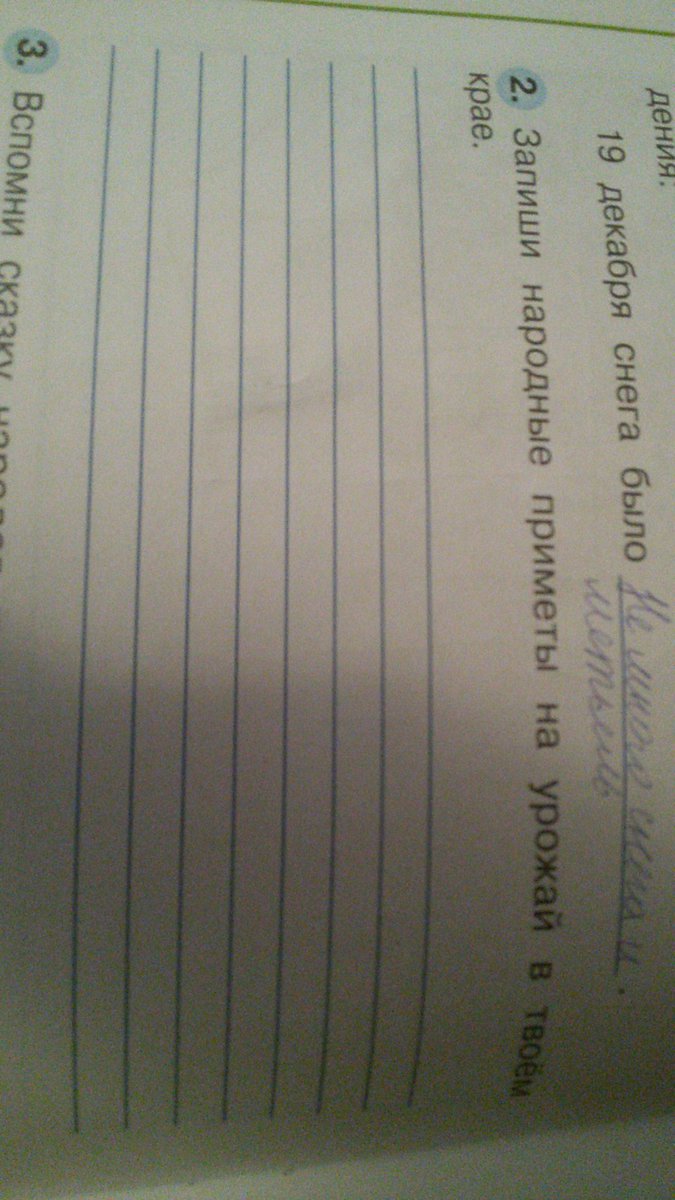 дения.
19 декабря снега было Не много снега и .
метьель
2. Запиши народные приметы на урожай в твоём
крае.
3. Вспомни сказку